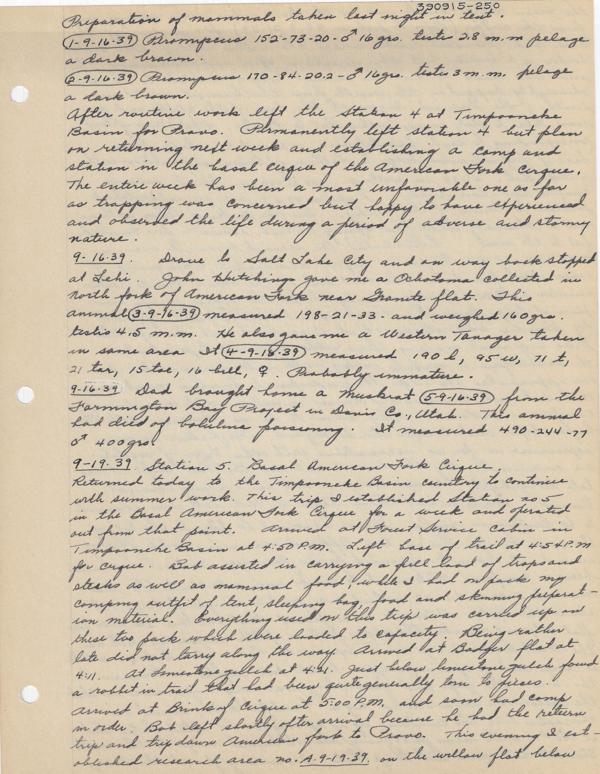 390915-250
Preparation of mammals taken last night in test.
1-9-16-39 Peromyscus 152-73-20-♂ 16 grs. testis 2.8 m.m pelage
a dark brown.
2-9-16-39 Peromyscus 170-84-20.2-♂ 16 grs. testis 3 m.m. pelage
a dark brown.
After routine work left the Station 4 at Timpooneke
Basin for Provo. Permanently left station 4 but plan
on returning next week and establishing a camp and
station in the basal cirque of the American Fork Cirque.
The entire week has been a most unfavorable one as far
as trapping was concerned but happy to have experienced
and observed the life during a period of adverse and stormy
nature.
9-16-39. Drove to Salt Lake City and on way back stopped
at Lehi. John Hutchings gave me a Ochotona collected in
north fork of American Fork near Granite flat. This
animal 3-9-16-39 measured 198-21-33- and weighed 160 grs.
testis 4.5 m.m. He also gave me a Western Tanager taken
in same area It 4-9-16-39 measured 190 l, 95 w, 71 t,
21 tar, 15 toe, 16 bill, ♀. Probably immature.
9-16-39 Dad brought home a Muskrat 5-9-16-39 from the
Farmington Bay Project in Davis Co., Utah. This animal
had died of botulinu poisoning. It measured 490-244-77
♂ 400 grs.
9-19-39 Station 5. Basal American Fork Cirque.
Returned today to the Timpooneke Basin country to continue
with summer work. This trip I established Station no 5
in the Basal American Fork Cirque for a week and operated
out from that point. Arrived at Forest Service Cabin in
Timpooneke Basin at 4:50 P.M. Left base of trail at 4:54 P.M
for cirque. Bob assisted in carrying a full load of traps and
steaks as well as mammal food, while I had on pack my
camping outfit of tent, sleeping bag, food and skinning preparat-
ion material. Everything used on this trip was carried up on
these two pack which were loaded to capacity. Being rather
late did not tarry along the way. Arrived at Badger flat at
4:11. At limestone gulch at 4:21. Just below limestone gulch found
a rabbit in trail that had been quite generally torn to pieces.
Arrived at Brink of Cirque at 5:00 P.M. and soon had camp
in order. Bob left shortly after arrival because he had the return
trip and trip down American fork to Provo. This evening I est-
ablished research area no. A-9-19-39. on the willow flat below